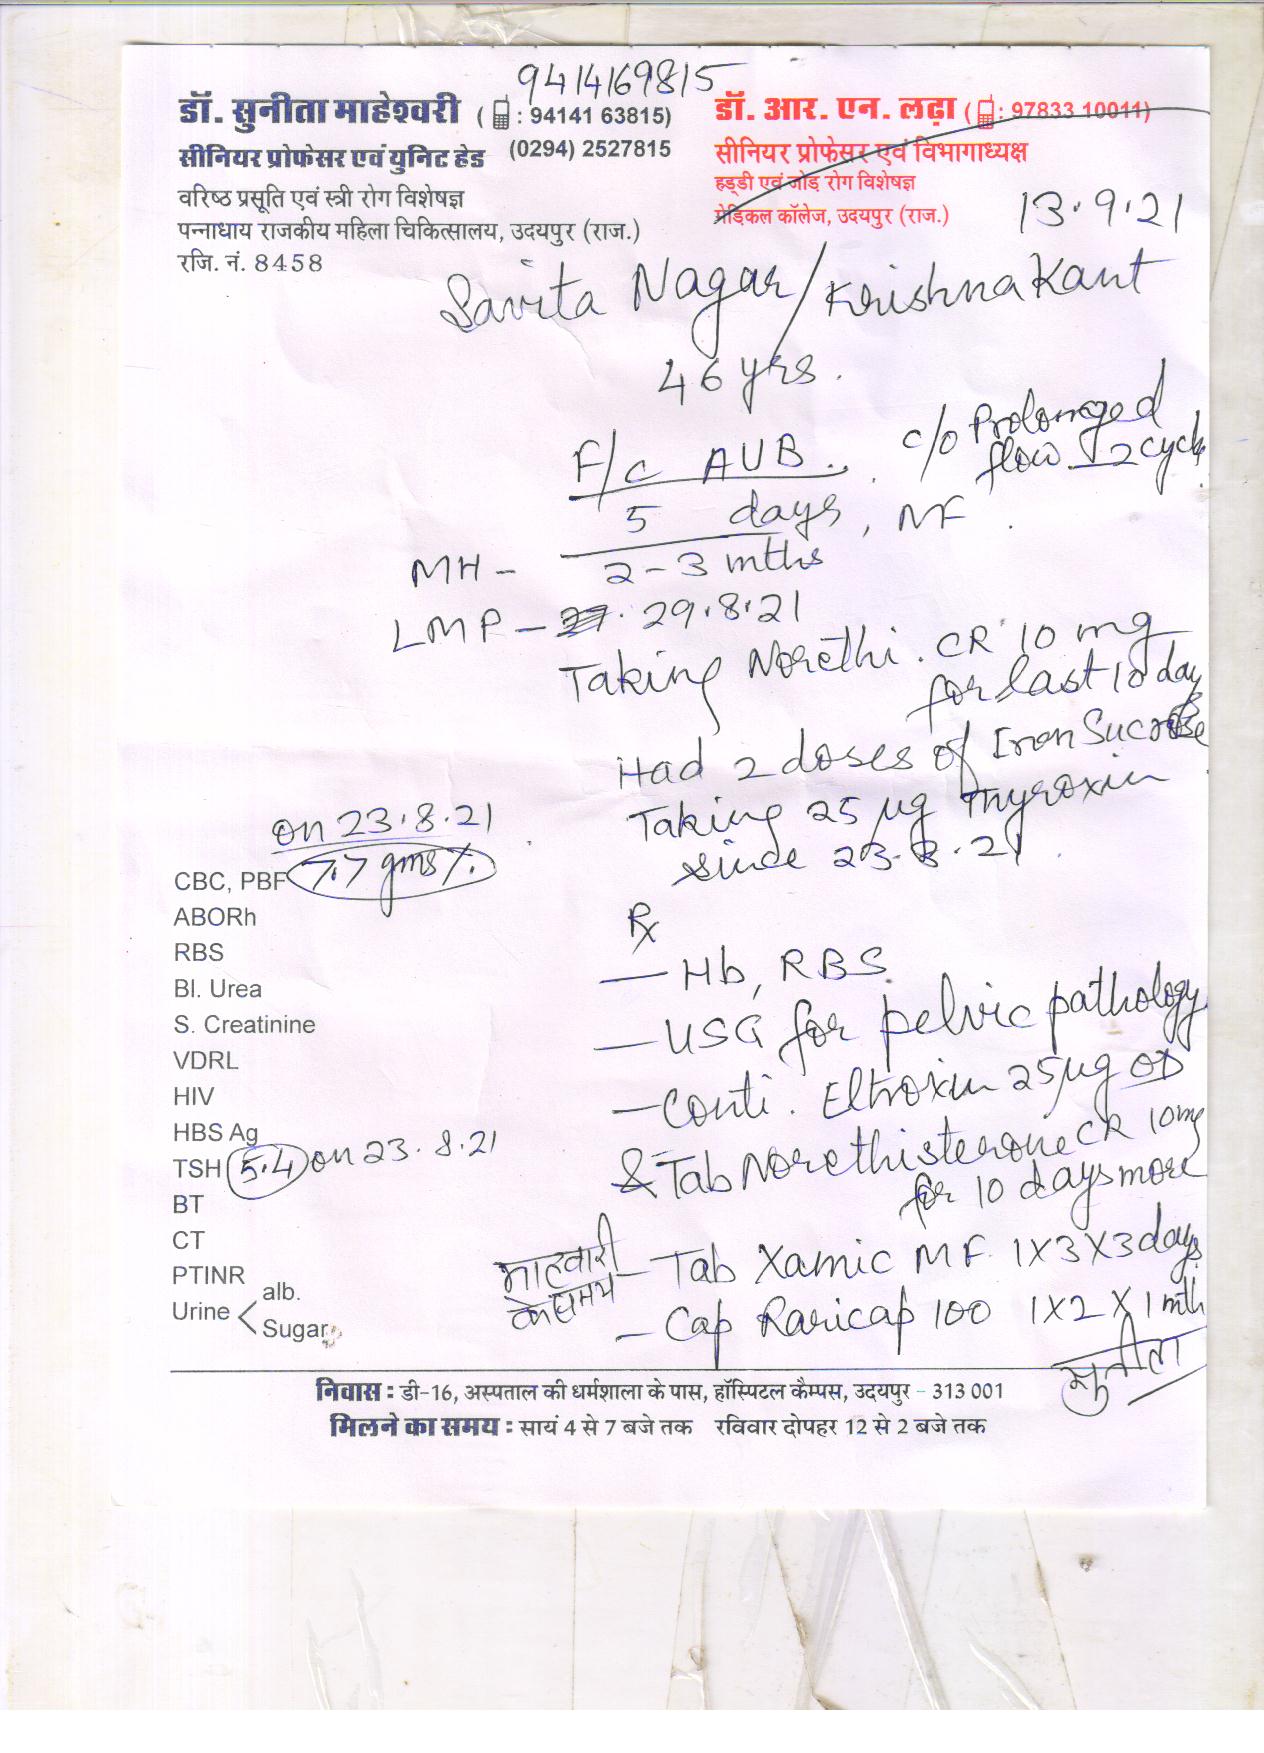 9414169815
डॉ. सुनीता माहेश्वरी ( : 94141 63815)
सीनियर प्रोफेसर एवं युनिट हेड (0294) 2527815
वरिष्ठ प्रसूति एवं स्त्री रोग विशेषज्ञ
पन्नाधाय राजकीय महिला चिकित्सालय, उदयपुर (राज.)
रजि. नं. 8458
डॉ. आर. एन. लढ़ा ( : 97833 10011)
सीनियर प्रोफेसर एवं विभागाध्यक्ष
हड्डी एवं जोड़ रोग विशेषज्ञ
मेडिकल कॉलेज, उदयपुर (राज.)
13.9.21
Savita Nagar/Krishna Kant
46 yrs.
F/c AUB.. c/o Prolonged
flow - 2 cycle
MH - 5 days, MF.
2-3 mths
LMP - 29.8.21
Taking Norethi. CR 10 mg
for last 10 day
Had 2 doses of Iron Sucrose
Taking 25 µg Thyroxin
since 23.8.21.
on 23.8.21
CBC, PBF 7.7 gms %.
ABORh
RBS
Bl. Urea
S. Creatinine
VDRL
HIV
HBS Ag
TSH 5.4 on 23.8.21
BT
CT
PTINR
Urine < alb.
Sugar
Rx
- Hb, RBS.
- USG for pelvic pathology
- Conti. Eltroxin 25 µg OD
& Tab Norethisterone CR 10mg
for 10 days more
माहवारी
के समय
- Tab Xamic MF. 1X3X3 days
- Cap Raricap 100 1X2X1 mth
सुनीता
निवास : डी-16, अस्पताल की धर्मशाला के पास, हॉस्पिटल कैम्पस, उदयपुर - 313 001
मिलने का समय : सायं 4 से 7 बजे तक रविवार दोपहर 12 से 2 बजे तक